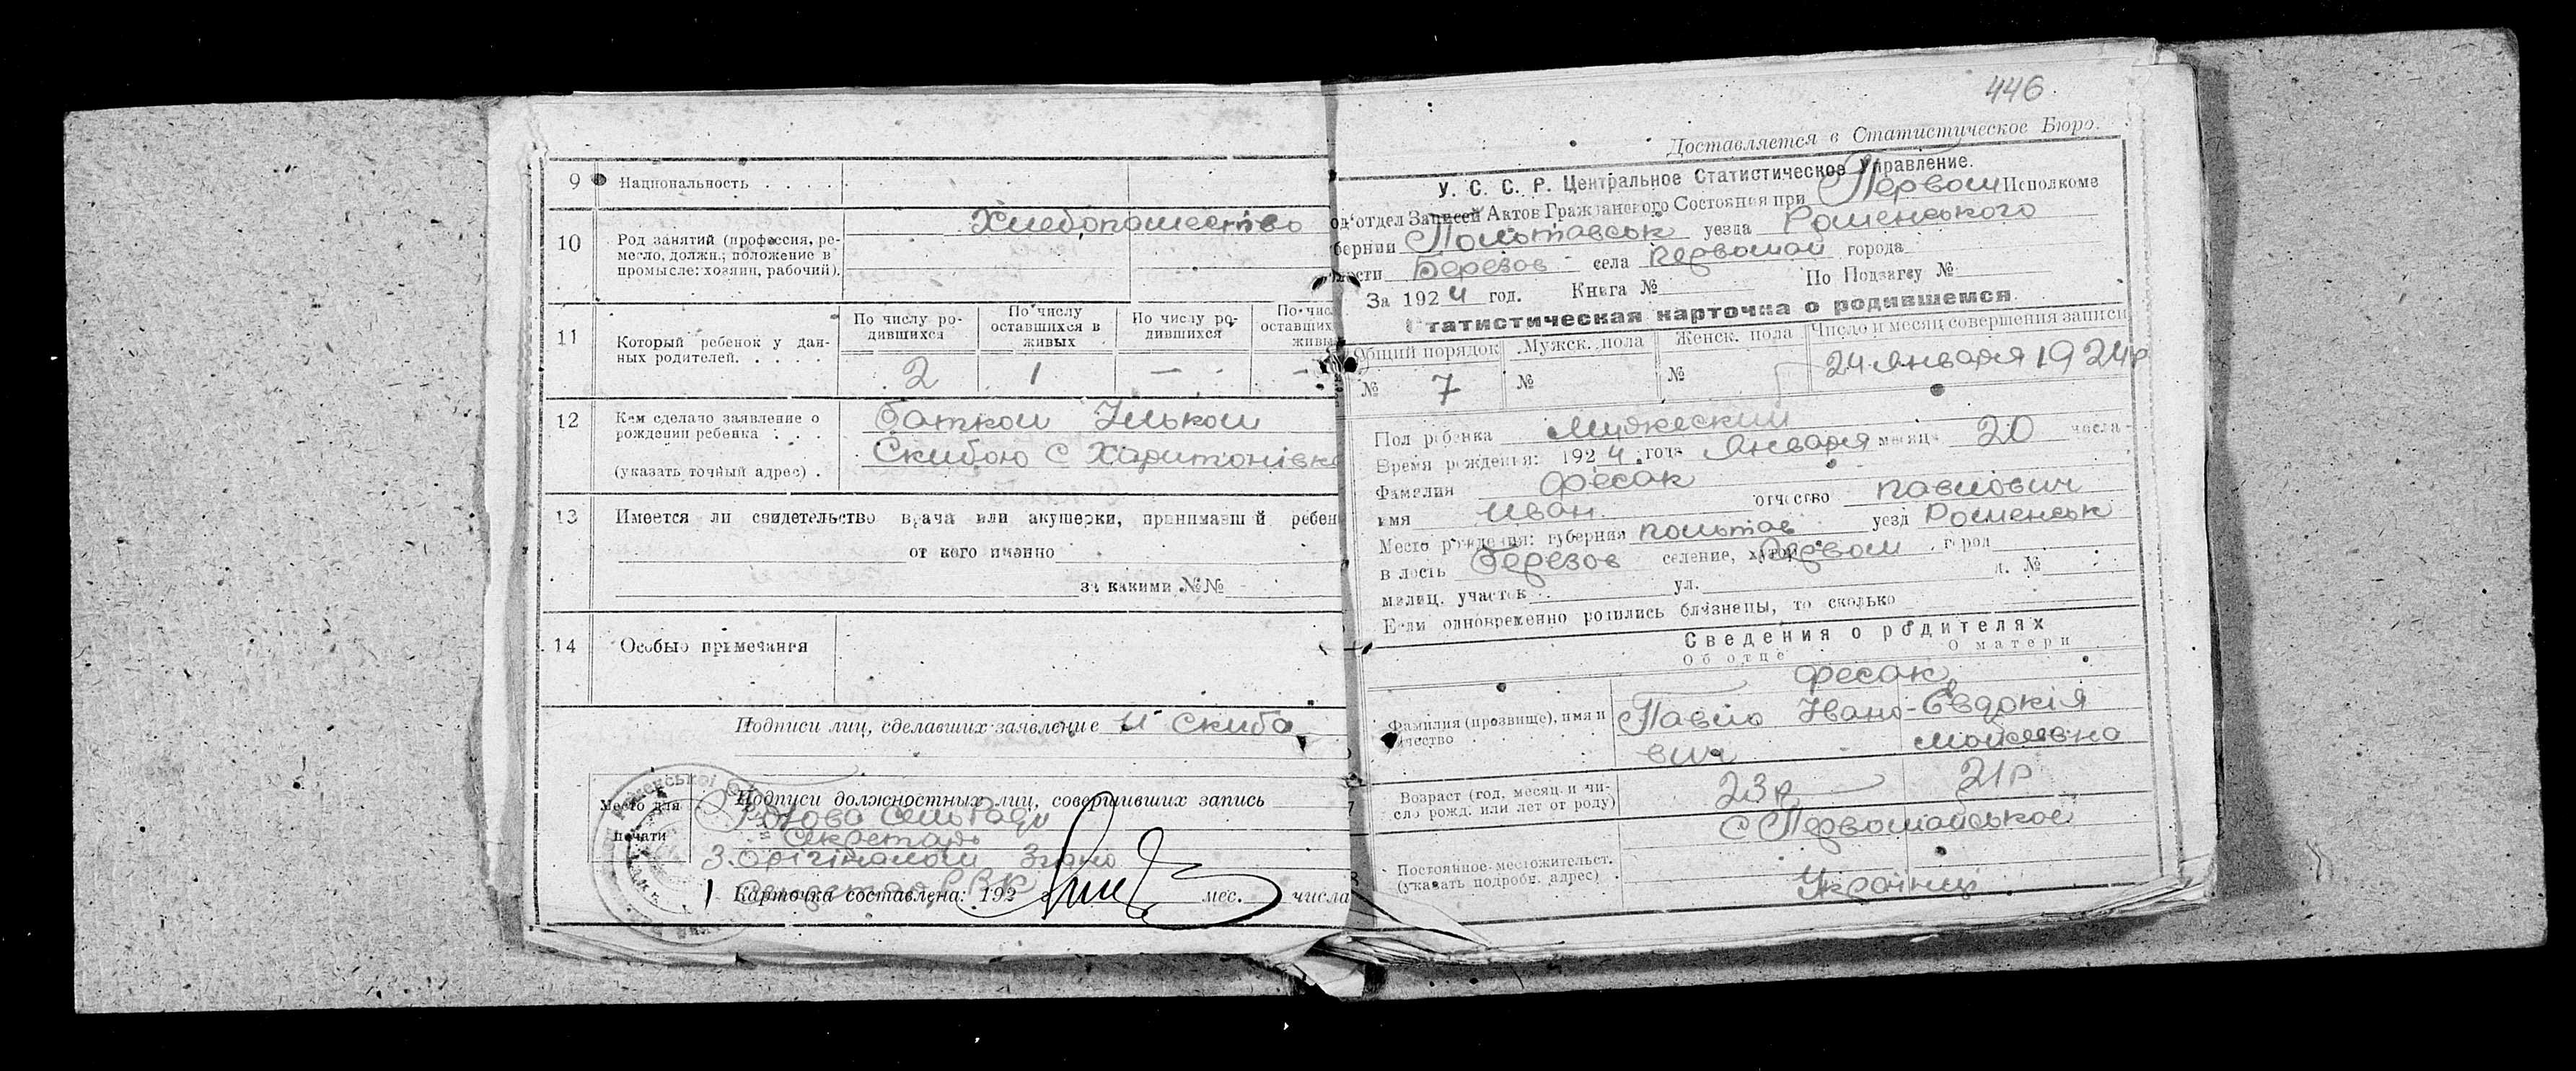 9 Национальность . . . . .
10 Род занятий (профессия, ре-
месло, должн., положение в
промысле: хозяин, рабочий).
Хлебопашество
11 Который ребенок у дан-
ных родителей. . . . .
По числу ро-
дившихся
По числу
оставшихся в
живых
По числу ро-
дившихся
По чис
оставших
живы
2 1 — —
12 Кем сделано заявление о
рождении ребенка . . . .
(указать точный адрес) .
батком Ильком
Скибою с Харитонівка
13 Имеется ли свидетельство врача или акушерки, принимавшей ребен
от кого именно
за какими №№
14 Особые примечания
Подписи лиц, сделавших заявление И Скиба
Место для
печати
Подписи должностных лиц, совершивших запись
Голова сільради
Секретарь
З оригіналом Згідно
Карточка составлена: 192 г. мес. числа
446
Доставляется в Статистическое Бюро.
У. С. С. Р. Центральное Статистическое Управление.
од'отдел Записей Актов Гражданского Состояния при Первом Исполкоме
бернии Полтавськ уезда Роменського
ности Березов села первомай города
За 1924 год. Книга № По Подзагсу №
Статистическая карточка о родившемся
Общий порядок Мужск. пола Женск. пола Число и месяц совершения записи
№ 7 № № 24 января 1924 р
Пол ребенка Мужеский
Время рожденья: 1924 года Января месяца 20 числа
Фамилия Фесак
имя Иван отчество павлович
Место рождения: губерния полтав уезд Роменськ
в лость Березов селение, хутор Первом город
милиц. участок ул. д. №
Если одновременно родились близнецы, то сколько
Сведения о родителях
Об отце О матери
Фесак
Фамилия (прозвище), имя и
отчество
Павло Івано- Євдокія
вич Мойсеевна
Возраст (год, месяц и чи-
сло рожд. или лет от роду)
23 р 21 р
Постоянное местожительст.
(указать подробн. адрес)
с Первомайськое
Українці